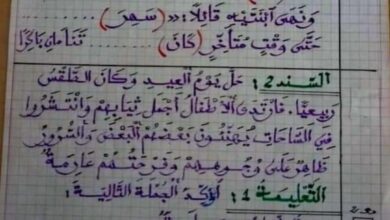 وَنَهَى ابْنَتَيْهِ قَائِلًا: «( سَهِرَ )
حَتَّى وَقْتٍ مُتَأَخِّرٍ ( كَانَ ) تَنَامَانِ بَاكِرًا
السّند 2: حَلَّ يَوْمُ الْعِيدِ وَكَانَ الطَّقْسُ
رَبِيعِيًّا. فَارْتَدَى الْأَطْفَالُ أَجْمَلَ ثِيَابِهِمْ وَانْتَشَرُوا
فِي السَّاحَاتِ يُهَنِّئُونَ بَعْضُهُمُ الْبَعْضَ وَالسُّرُورُ
ظَاهِرٌ عَلَى وُجُوهِهِمْ وَفَرْحَتُهُمْ عَارِمَةٌ
التّعليمة 1: أُؤَكِّدُ الْجُمْلَةَ التَّالِيَةَ: